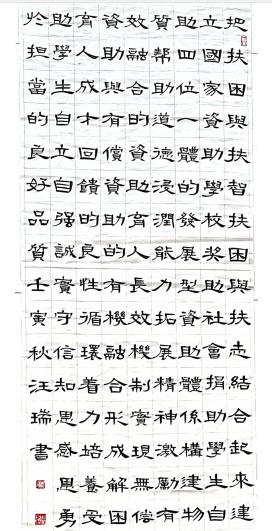 把扶困與扶智扶困與扶志結合起來建
立國家資助學校奖助社會捐助學生自
助四位一體的發展型資助體係構建物
質幫助道德浸潤能力拓展精神激勵有
效融合的資助育人長效機制實現無償
資助與有償資助的有機融合形成解困
育人成才回饋的良性循環着力培養受
助學生自立自强誠實守信知恩感恩勇
於担當的良好品質壬寅秋汪瑞書